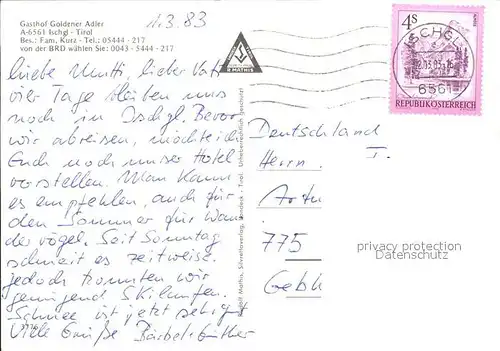 Gasthof Goldener Adler
A-6561 Ischgl - Tirol
Bes.: Fam. Kurz - Tel.: 05444 - 217
von der BRD wählen Sie: 0043 - 5444 - 217
1.3.83
R. MATHIS
4S
ISCHGL
02.03.83-16
6561
REPUBLIK ÖSTERREICH
liebe Mutti, lieber Vati
vier Tage bleiben uns
noch in Ischgl. Bevor
wir abreisen, möchte ich
Euch noch unser Hotel
vorstellen. Man kann
es empfehlen, auch für
den Sommer für Wan
dervögel. Seit Sonntag
schneit es zeitweise.
jedoch konnten wir
genügend Skilaufen.
Schnee ist jetzt
Viele Grüße Bärbel + Günther
3776
Rudolf Mathis, Silvretta-Verlag, Landeck - Tirol Urheberrechtlich geschützt
Deutschland
Herrn I.
Artu
775
Gebh
privacy protection
OldThing